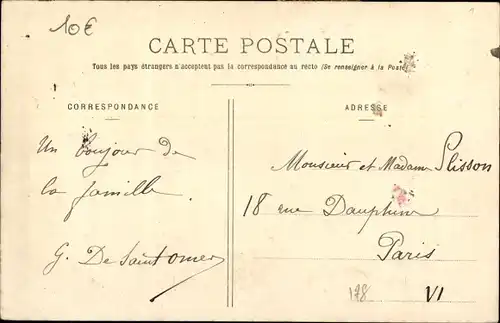 10€
CARTE POSTALE
Tous les pays étrangers n'acceptent pas la correspondance au recto (Se renseigner à la Poste)
CORRESPONDANCE
ADRESSE
Un bonjour de
la famille
G. De Saint omer
Monsieur et Madame Slisson
18 rue Dauphine
Paris
178 VI